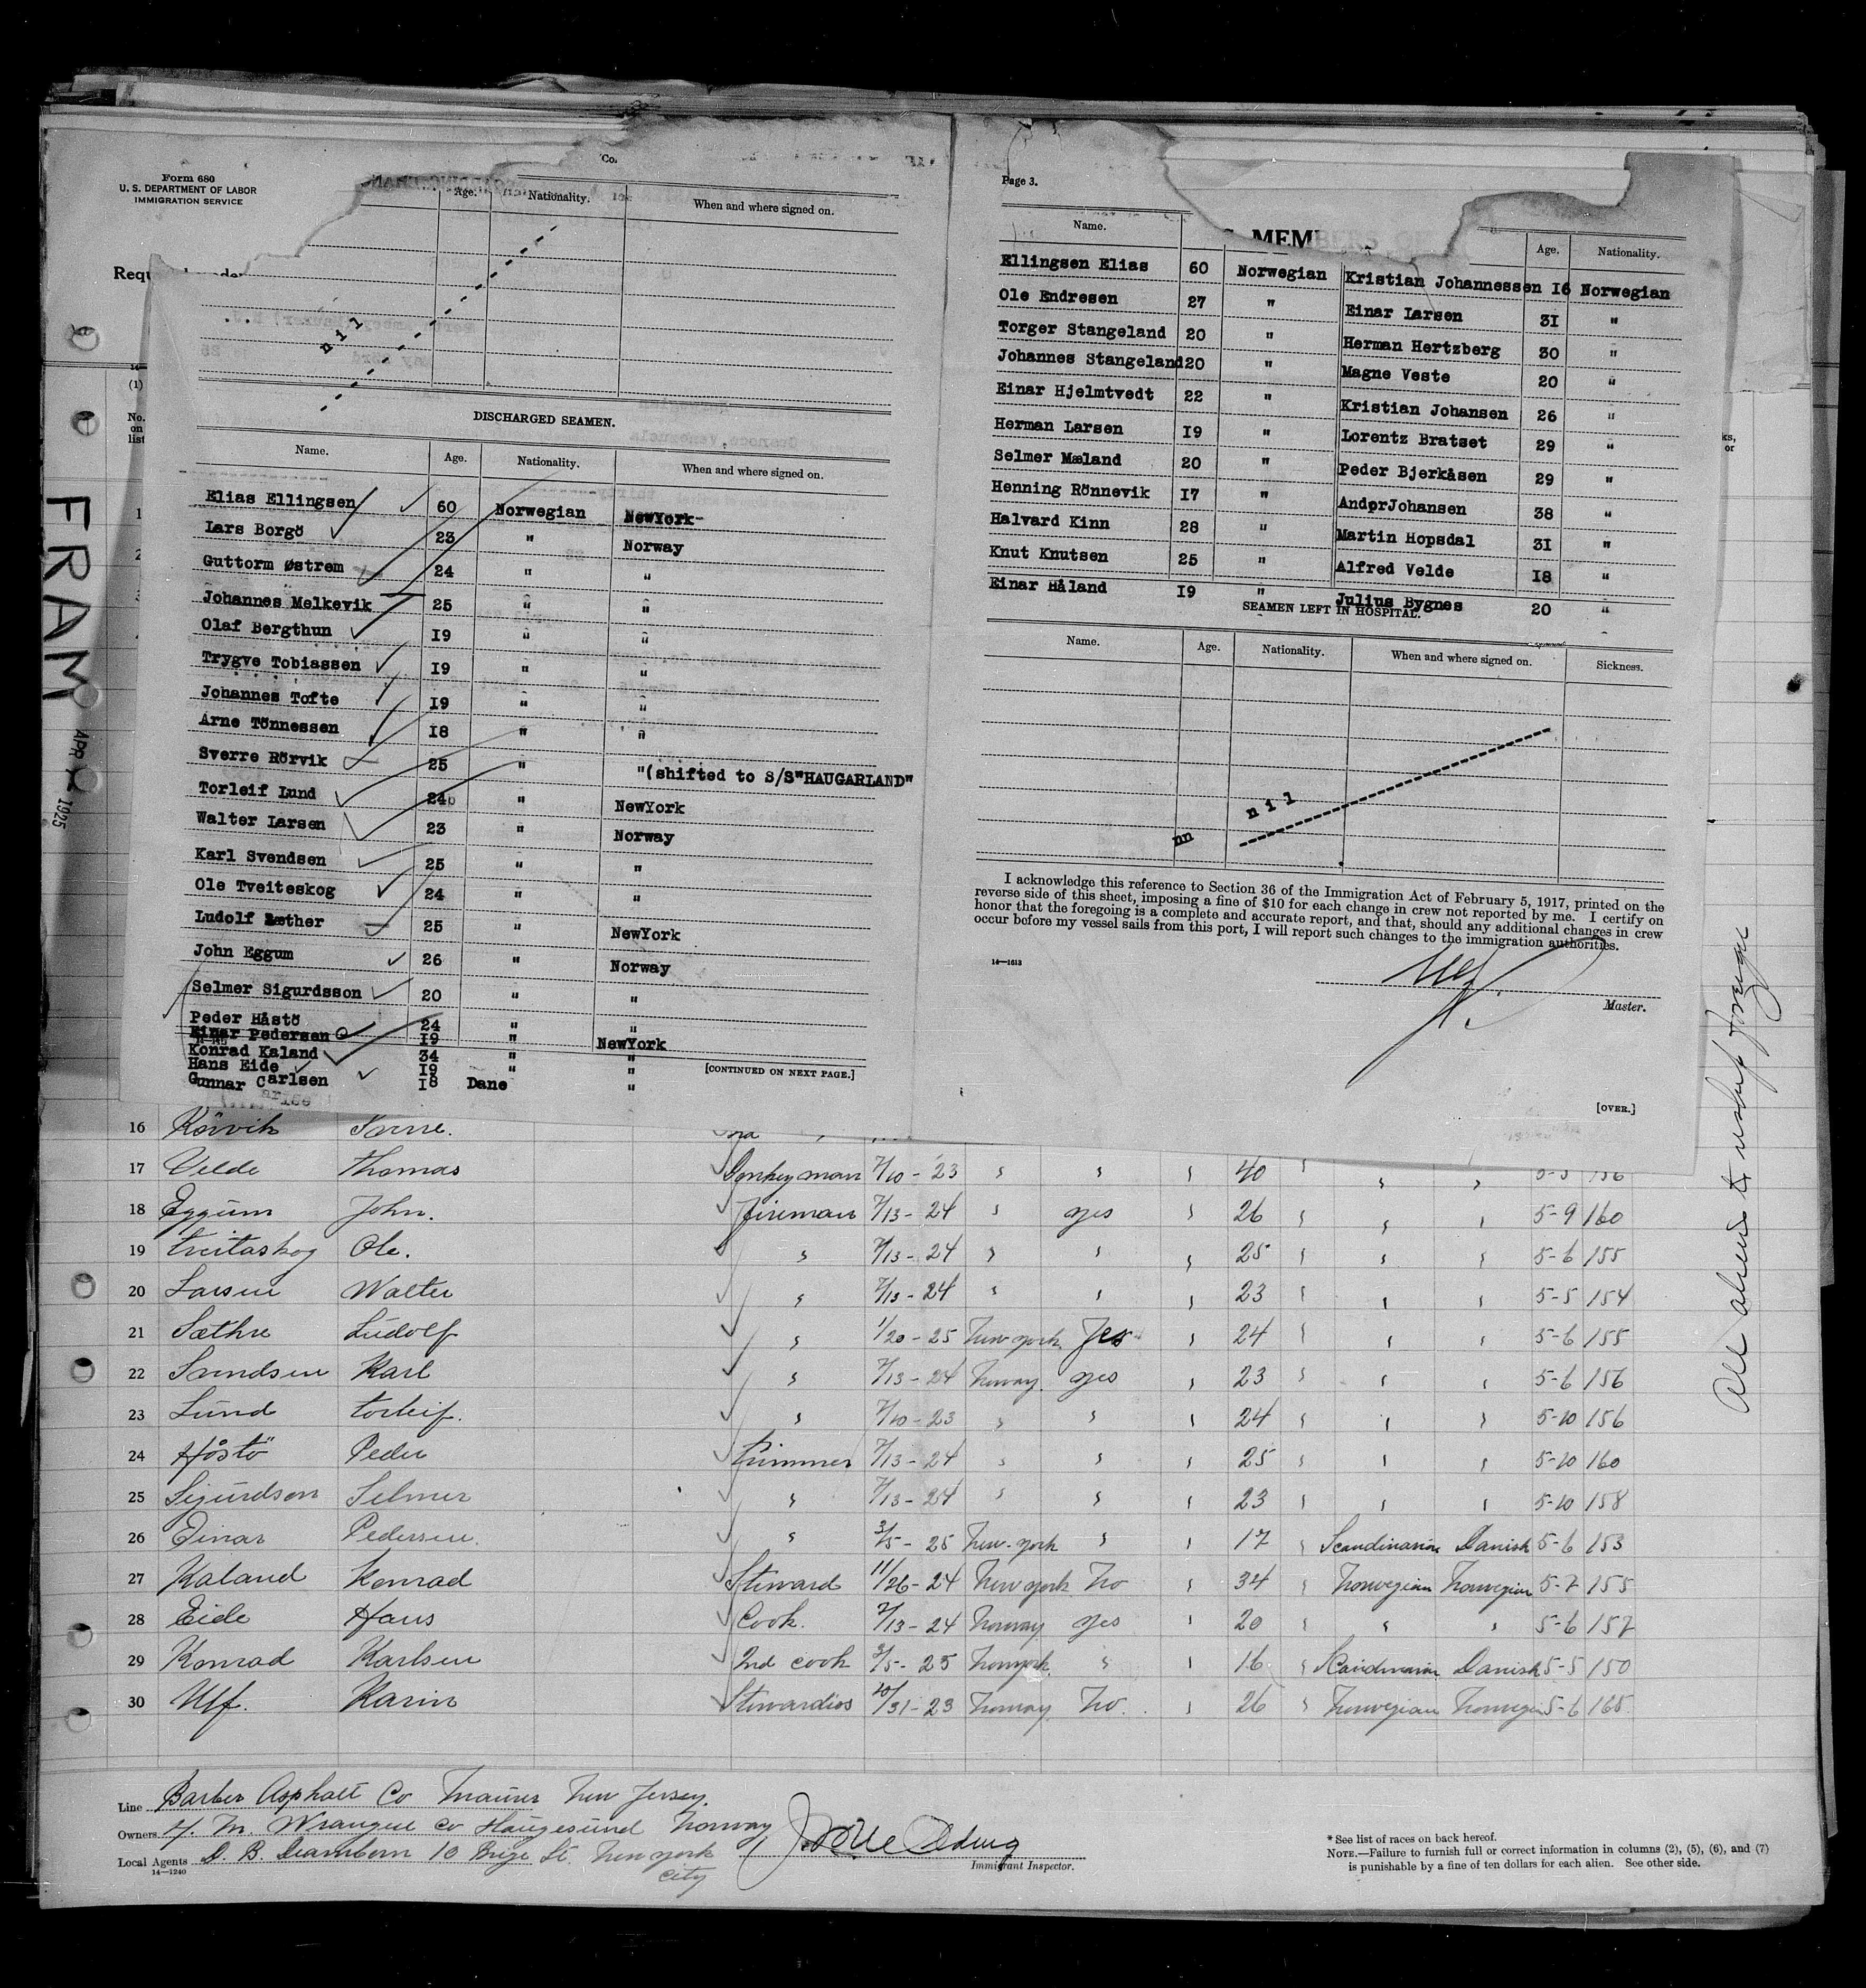 Form 680
U. S. DEPARTMENT OF LABOR
IMMIGRATION SERVICE
FRAM
APR 1925
Age. Nationality. When and where signed on.
nil
DISCHARGED SEAMEN.
Name. Age. Nationality. When and where signed on.
Elias Ellingsen 60 Norwegian NewYork
Lars Borgö 23 " Norway
Guttorm Østrem 24 " "
Johannes Melkevik 25 " "
Olaf Bergthun 19 " "
Trygve Tobiassen 19 " "
Johannes Tofte 19 " "
Arne Tönnessen 18 " "
Sverre Rörvik 25 " "(shifted to S/S"HAUGARLAND"
Torleif Lund 24 " NewYork
Walter Larsen 23 " Norway
Karl Svendsen 25 " "
Ole Tveiteskog 24 " "
Ludolf Sæther 25 " NewYork
John Eggum 26 " Norway
Selmer Sigurdsson 20 " "
Peder Håstö 24 " "
Einar Pedersen 19 " NewYork
Konrad Kaland 34 " "
Hans Eide 19 " "
Gunnar Carlsen 18 Dane "
[CONTINUED ON NEXT PAGE.]
Page 3.
Name. Age. Nationality.
Ellingsen Elias 60 Norwegian Kristian Johannessen 16 Norwegian
Ole Endresen 27 " Einar Larsen 31 "
Torger Stangeland 20 " Herman Hertzberg 30 "
Johannes Stangeland 20 " Magne Veste 20 "
Einar Hjelmtvedt 22 " Kristian Johansen 26 "
Herman Larsen 19 " Lorentz Bratset 29 "
Selmer Mæland 20 " Peder Bjerkåsen 29 "
Henning Rönnevik 17 " AndorJohansen 38 "
Halvard Kinn 28 " Martin Hopsdal 31 "
Knut Knutsen 25 " Alfred Velde 18 "
Einar Håland 19 " Julius Bygnes 20 "
SEAMEN LEFT IN HOSPITAL.
Name. Age. Nationality. When and where signed on. Sickness.
nil
nn
I acknowledge this reference to Section 36 of the Immigration Act of February 5, 1917, printed on the
reverse side of this sheet, imposing a fine of $10 for each change in crew not reported by me. I certify on
honor that the foregoing is a complete and accurate report, and that, should any additional changes in crew
occur before my vessel sails from this port, I will report such changes to the immigration authorities.
14—1613
Master.
[OVER.]
16 Rörvik
17 Velde Thomas Donkeyman 7/10-23 " " " 40 " " " 5-5 156
18 Eggum John. fireman 7/13-24 " yes " 26 " " " 5-9 160
19 Tveitaskog Ole. " 7/13-24 " " " 25 " " " 5-6 155
20 Larsen Walter " 7/13-24 " " " 23 " " " 5-5 154
21 Sæthre Ludolf " 1/20-25 New york Yes " 24 " " " 5-6 155
22 Svendsen Karl " 7/13-24 Norway. yes " 23 " " " 5-6 156
23 Lund Torleif. " 7/10-23 " " " 24 " " " 5-10 156
24 Håstö Peder trimmer 7/13-24 " " " 25 " " " 5-10 160
25 Sigurdson Selmer " 7/13-24 " " " 23 " " " 5-10 158
26 Einar Pedersen. " 3/5-25 New-york " " 17 " Scandinavian Danish 5-6 153
27 Kaland Konrad Steward 11/26-24 New york No " 34 " Norwegian Norwegian 5-7 155
28 Eide Hans Cook. 7/13-24 Norway yes " 20 " " " 5-6 157
29 Konrad Karlsen 2nd cook 3/5-25 Newyork " " 16 " Scandinavian Danish 5-5 150
30 Ulf. Karin Stewardios 10/31-23 Norway. No. " 26 " Norwegian Norwegian 5-6 165
Line Barber Asphalt Co Maurer New Jersey.
Owners H. M. Wrangell Co Haugesund Norway
Local Agents D. B. Dearborn 10 Brige St. New york
city
14—1240
Immigrant Inspector.
* See list of races on back hereof.
NOTE.—Failure to furnish full or correct information in columns (2), (5), (6), and (7)
is punishable by a fine of ten dollars for each alien. See other side.